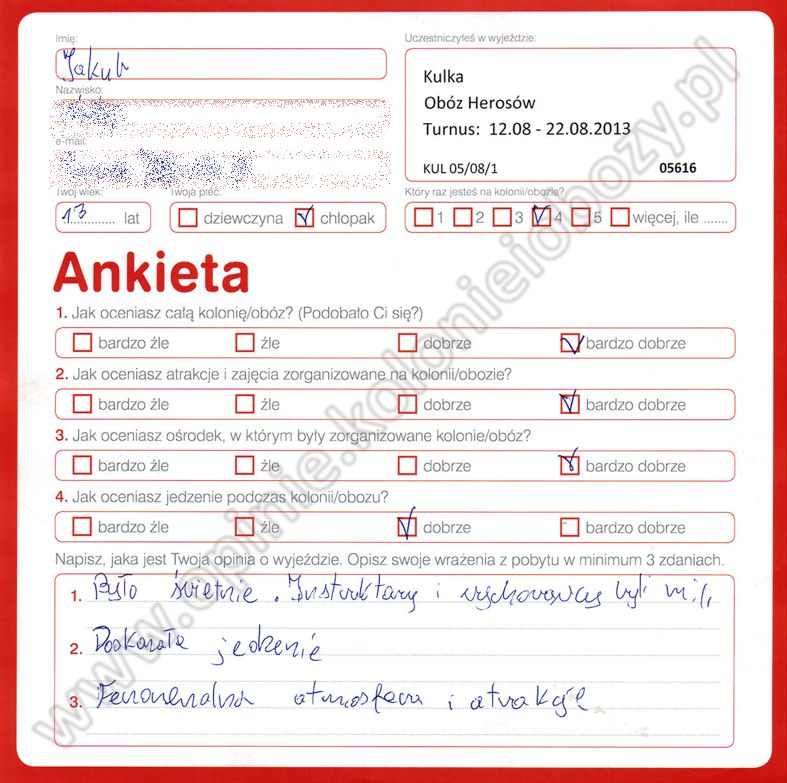 Imię:
Jakub
Nazwisko:
e-mail:
Twój wiek:
13 lat
Twoja płeć:
dziewczyna chłopak
Uczestniczyłeś w wyjeździe:
Kulka
Obóz Herosów
Turnus: 12.08 - 22.08.2013
KUL 05/08/1 05616
Który raz jesteś na kolonii/obozie?
1 2 3 4 5 więcej, ile .......
Ankieta
1. Jak oceniasz całą kolonię/obóz? (Podobało Ci się?)
bardzo źle źle dobrze bardzo dobrze
2. Jak oceniasz atrakcje i zajęcia zorganizowane na kolonii/obozie?
bardzo źle źle dobrze bardzo dobrze
3. Jak oceniasz ośrodek, w którym były zorganizowane kolonie/obóz?
bardzo źle źle dobrze bardzo dobrze
4. Jak oceniasz jedzenie podczas kolonii/obozu?
bardzo źle źle dobrze bardzo dobrze
Napisz, jaka jest Twoja opinia o wyjeździe. Opisz swoje wrażenia z pobytu w minimum 3 zdaniach.
1. Było świetnie. Instruktorzy i wychowawcy byli mili
2. Doskonałe jedzenie
3. Fenomenalna atmosfera i atrakcje
www.opinie.kolonieiobozy.pl